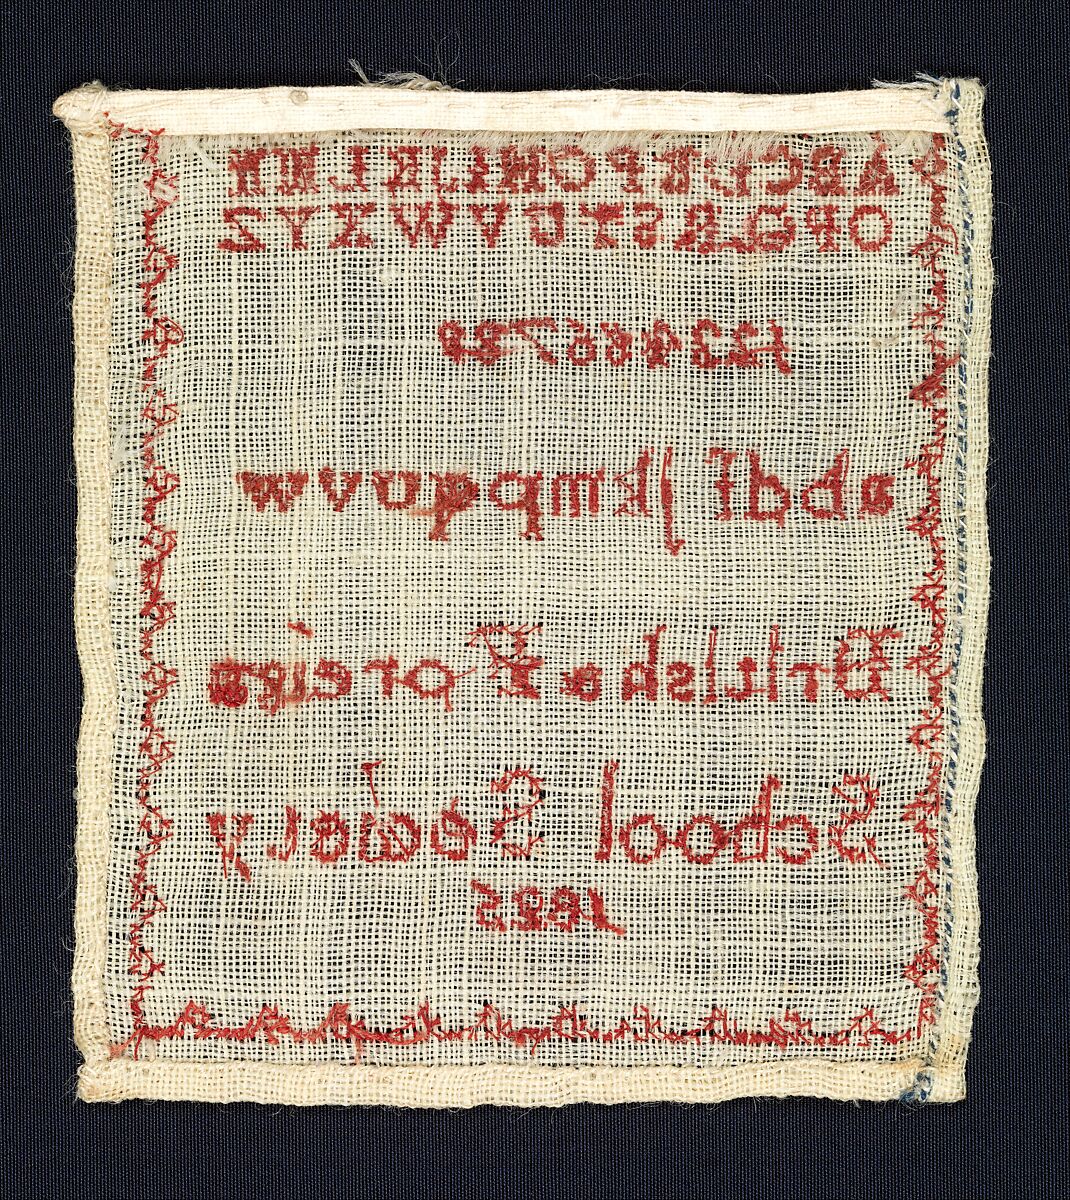 ABCDEFGHIJKLMN
OPQRSTUVWXYZ
123456789
abdf jkmpquvw
British & Foreign
School Society